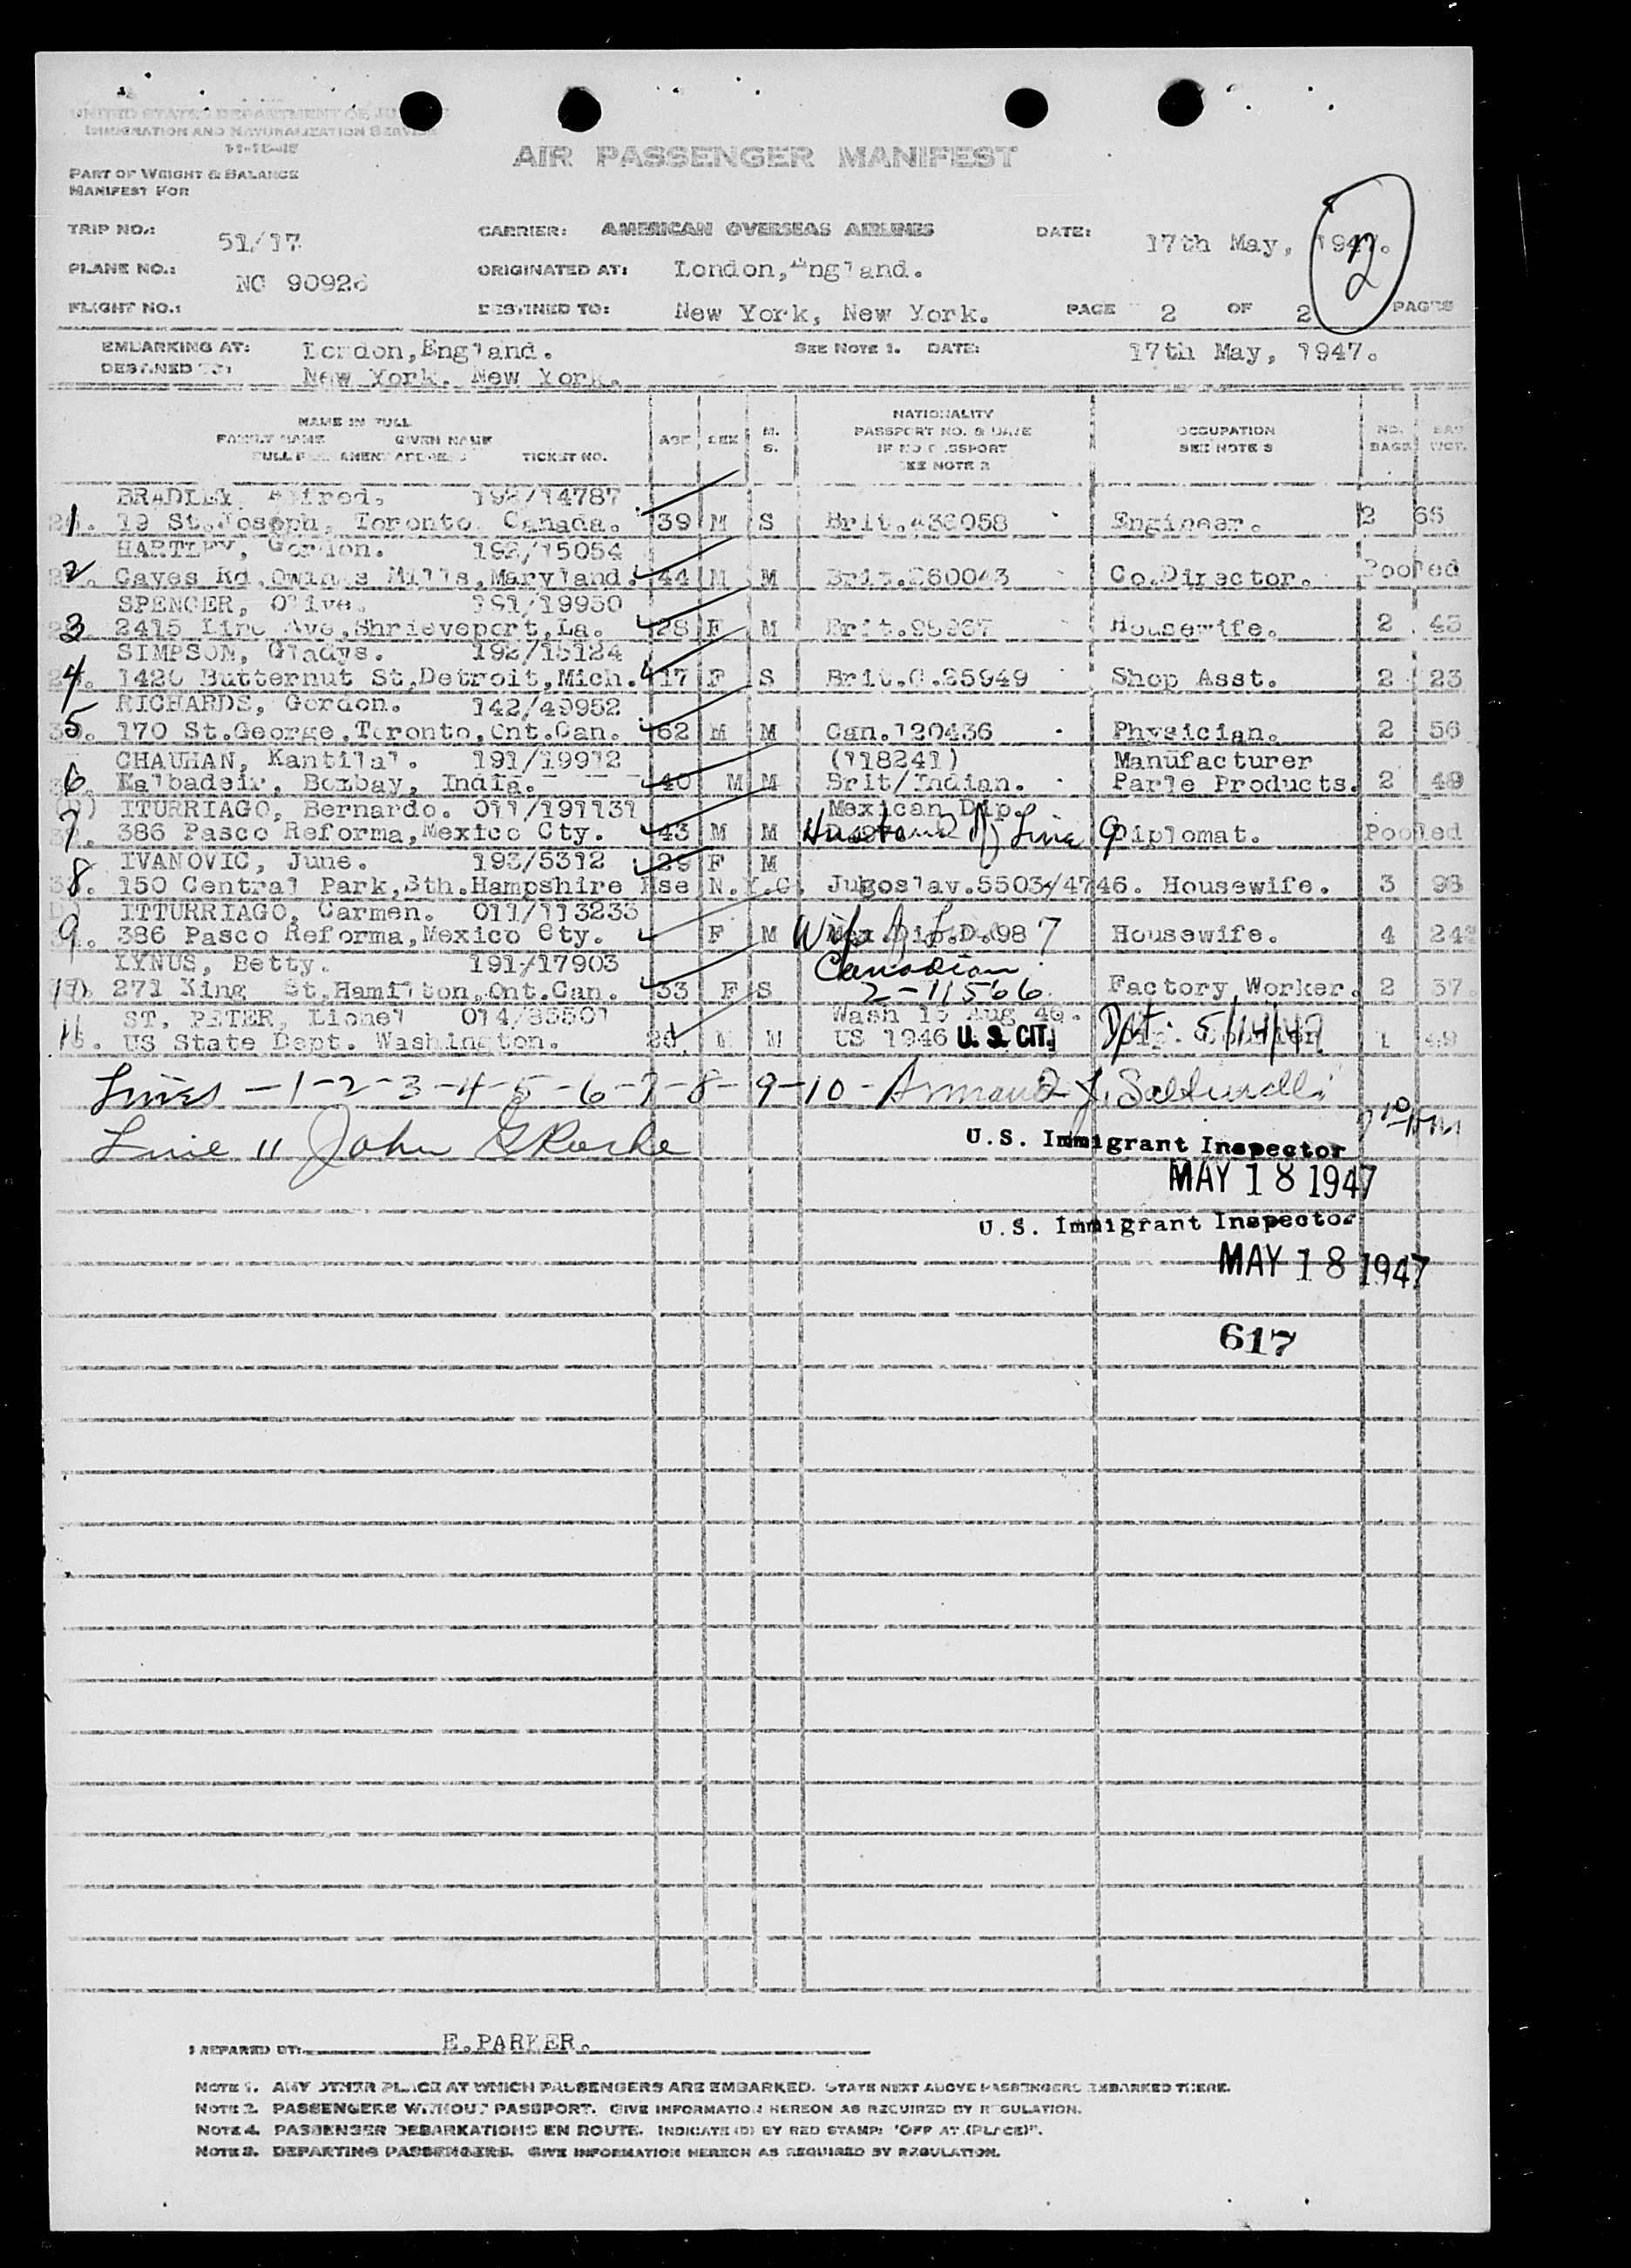 UNITED STATES DEPARTMENT OF JUSTICE
IMMIGRATION AND NATURALIZATION SERVICE
AIR PASSENGER MANIFEST
PART OF WEIGHT & BALANCE
MANIFEST FOR
TRIP NO.: 51/17 CARRIER: AMERICAN OVERSEAS AIRLINES DATE: 17th May, 1947.
2
PLANE NO.: NC 90926 ORIGINATED AT: London, England.
FLIGHT NO.: DESTINED TO: New York, New York. PAGE 2 OF 2 PAGES
EMBARKING AT: London, England. SEE NOTE 1. DATE: 17th May, 1947.
DESTINED TO: New York. New York.
NAME IN FULL NATIONALITY
FAMILY NAME GIVEN NAME AGE SEX M. S. PASSPORT NO. & DATE OCCUPATION NO. BAGS BAG WGT.
IF NO PASSPORT SEE NOTE 3
FULL PERMANENT ADDRESS TICKET NO. SEE NOTE 2
BRADLEY, Alfred. 192/14787
1 19 St.Joseph, Toronto Canada. 39 M S Brit. Engineer. 2 65
HARTLEY, Gordon. 192/15054
2 Caves Rd,Owings Mills,Maryland. 44 M M Brit. Co.Director. Pooled
SPENCER, Olive. 191/19950
3 2415 Line Ave,Shrieveport,La. 28 F M Brit. Housewife. 2 43
SIMPSON, Gladys. 192/15124
4 1420 Butternut St,Detroit,Mich. 17 F S Brit.C.25949 Shop Asst. 2 23
RICHARDS, Gordon. 142/49952
5 170 St.George,Toronto,Ont.Can. 62 M M Can.120436 Physician. 2 56
CHAUHAN, Kantilal. 191/19912 (118241) Manufacturer
6 Kalbadeir, Bombay, India. 40 M M Brit/Indian. Parle Products. 2 49
ITURRIAGO, Bernardo. 011/191131 Mexican Dip.
7 386 Pasco Reforma,Mexico Cty. 43 M M Husband of Line 9 Diplomat. Pooled
IVANOVIC, June. 193/5312 29 F M
8 150 Central Park,Sth.Hampshire Hse N.Y.C. Jugoslav.5503/4746. Housewife. 3 98
ITTURRIAGO, Carmen. 011/113233
9 386 Pasco Reforma,Mexico Cty. F M Wife of L 7 Mex.Dip.D.98 Housewife. 4 242
LYNUS, Betty. 191/17903 Canadian
10 271 King St,Hamilton,Ont.Can. 33 F S 2-11566 Factory Worker. 2 37.
ST. PETER, Lionel 014/85501 Wash 15 Aug 46.
11 US State Dept. Washington. M M US 1946 U.S. CIT. 1 49
Lines - 1-2-3-4-5-6-7-8-9-10 - Armand J.
Line 11 John
U.S. Immigrant Inspector
MAY 18 1947
U.S. Immigrant Inspector
MAY 18 1947
617
PREPARED BY: E.PARKER.
NOTE 1. ANY OTHER PLACE AT WHICH PASSENGERS ARE EMBARKED. STATE NEXT ABOVE PASSENGERS EMBARKED THERE.
NOTE 2. PASSENGERS WITHOUT PASSPORT. GIVE INFORMATION HEREON AS REQUIRED BY REGULATION.
NOTE 4. PASSENGER DEBARKATIONS EN ROUTE. INDICATE (D) BY RED STAMP: "OFF AT (PLACE)".
NOTE 3. DEPARTING PASSENGERS. GIVE INFORMATION HEREON AS REQUIRED BY REGULATION.